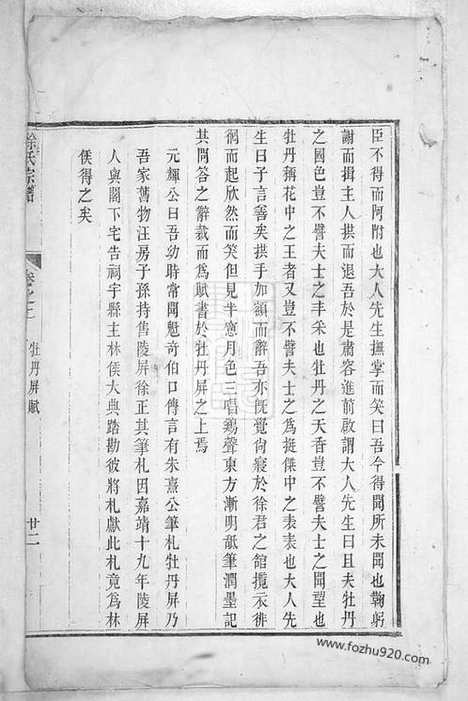 臣不得而阿附也大人先生撫掌而笑曰吾今得聞所未聞也鞠躬
謝而揖主人拱而退吾於是肅容進前啟謂大人先生曰且夫牡丹
之國色豈不譬夫士之丰采也牡丹之天香豈不譬夫士之聞望也
牡丹稱花中之王者又豈不譬夫士之為挺傑中之表表也大人先
生曰子言善矣拱手加額而辭吾亦旣覺尙寢於徐君之館攬衣徘
徊而起欣然而笑但見半窓月色三唱鷄聲東方漸明舐筆潤墨記
其問答之辭裁而為賦書於牡丹屏之上焉
元輝公曰吾幼時常聞魁奇伯口傳言有朱熹公筆札牡丹屏乃
吾家舊物汪房子孫持售陵屏徐正其筆札因嘉靖十九年陵屏
人與閣下宅告祠宇縣主林侯大典踏勘彼將札獻此札竟為林
侯得之矣
徐氏宗譜
卷之
牡丹屏賦
廿二
www.fozhu920.com